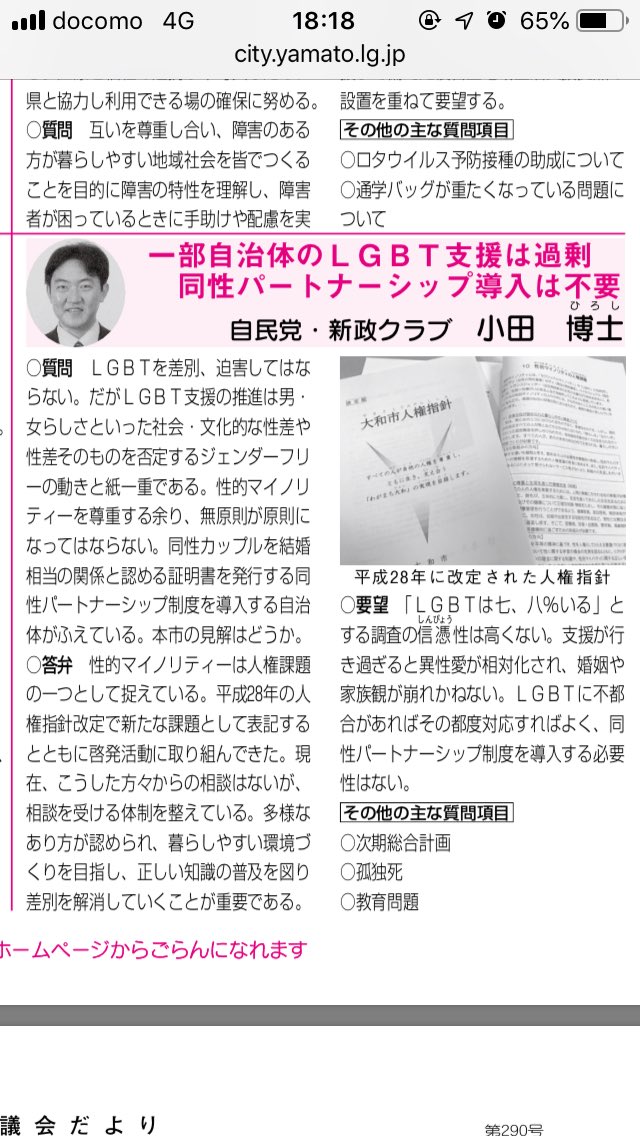 docomo 4G 18:18 65%
city.yamato.lg.jp
県と協力し利用できる場の確保に努める。
○質問 互いを尊重し合い、障害のある
方が暮らしやすい地域社会を皆でつくる
ことを目的に障害の特性を理解し、障害
者が困っているときに手助けや配慮を実
設置を重ねて要望する。
その他の主な質問項目
○ロタウイルス予防接種の助成について
○通学バッグが重たくなっている問題に
ついて
一部自治体のLGBT支援は過剰
同性パートナーシップ導入は不要
ひろし
自民党・新政クラブ 小田 博士
○質問 LGBTを差別、迫害してはな
らない。だがLGBT支援の推進は男・
女らしさといった社会・文化的な性差や
性差そのものを否定するジェンダーフリ
ーの動きと紙一重である。性的マイノリ
ティーを尊重する余り、無原則が原則に
なってはならない。同性カップルを結婚
相当の関係と認める証明書を発行する同
性パートナーシップ制度を導入する自治
体がふえている。本市の見解はどうか。
○答弁 性的マイノリティーは人権課題
の一つとして捉えている。平成28年の人
権指針改定で新たな課題として表記する
とともに啓発活動に取り組んできた。現
在、こうした方々からの相談はないが、
相談を受ける体制を整えている。多様な
あり方が認められ、暮らしやすい環境づ
くりを目指し、正しい知識の普及を図り
差別を解消していくことが重要である。
大和市人権指針
すべての人が自他の人権を尊重し、
ともに生き、支え合う
「わがまち大和」の実現を目指します。
大和市
平成28年に改定された人権指針
○要望 「LGBTは七、八%いる」と
しんぴょう
する調査の信憑性は高くない。支援が行
き過ぎると異性愛が相対化され、婚姻や
家族観が崩れかねない。LGBTに不都
合があればその都度対応すればよく、同
性パートナーシップ制度を導入する必要
性はない。
その他の主な質問項目
○次期総合計画
○孤独死
○教育問題
ホームページからごらんになれます
議会だより
第290号